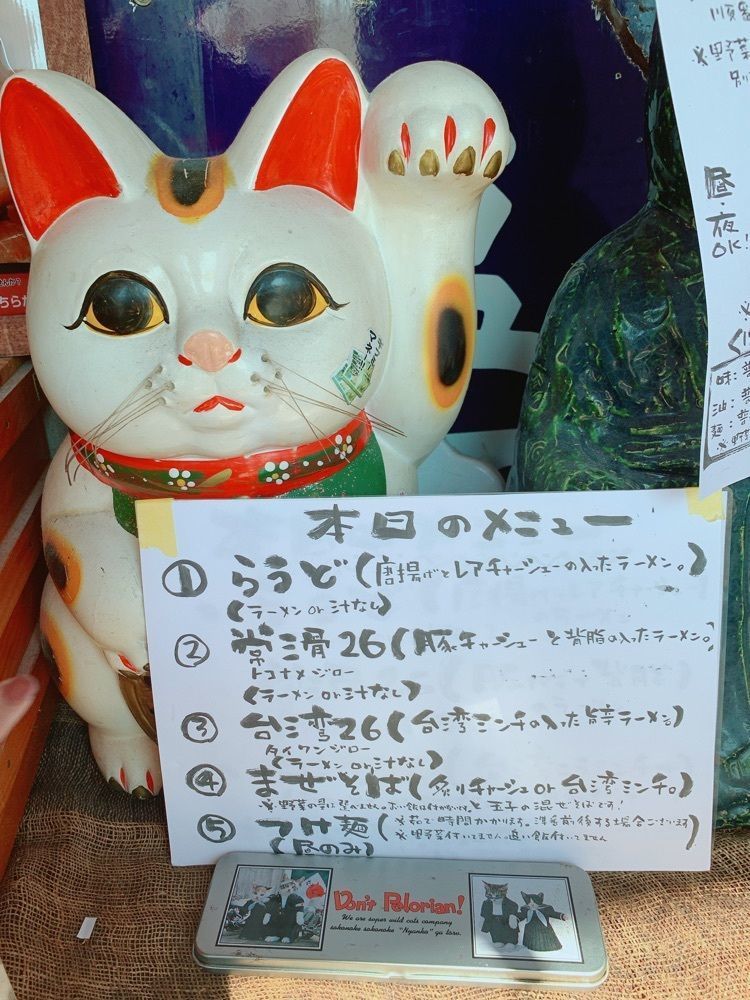 本日のメニュー
① らうど(唐揚げとレアチャーシューの入ったラーメン。)
(ラーメン or 汁なし)
② 常滑26(豚チャーシューと背脂の入ったラーメン。)
トコナメジロー
(ラーメン or 汁なし)
③ 台湾26(台湾ミンチの入った辛ラーメン)
タイワンジロー
(ラーメン or 汁なし)
④ まぜそば(炙りチャーシュー or 台湾ミンチ。)
と玉子の混ぜそばです!
⑤ つけ麺(※茹で時間かかります。
(昼のみ)
※野菜付いてません。追い飯付いてません
Don't Pelorian!
We are super wild cats company
sakanoke sakanoke "Nyanko" ga toru.
※野菜
別
昼・夜
OK!
味:
油:
麺: